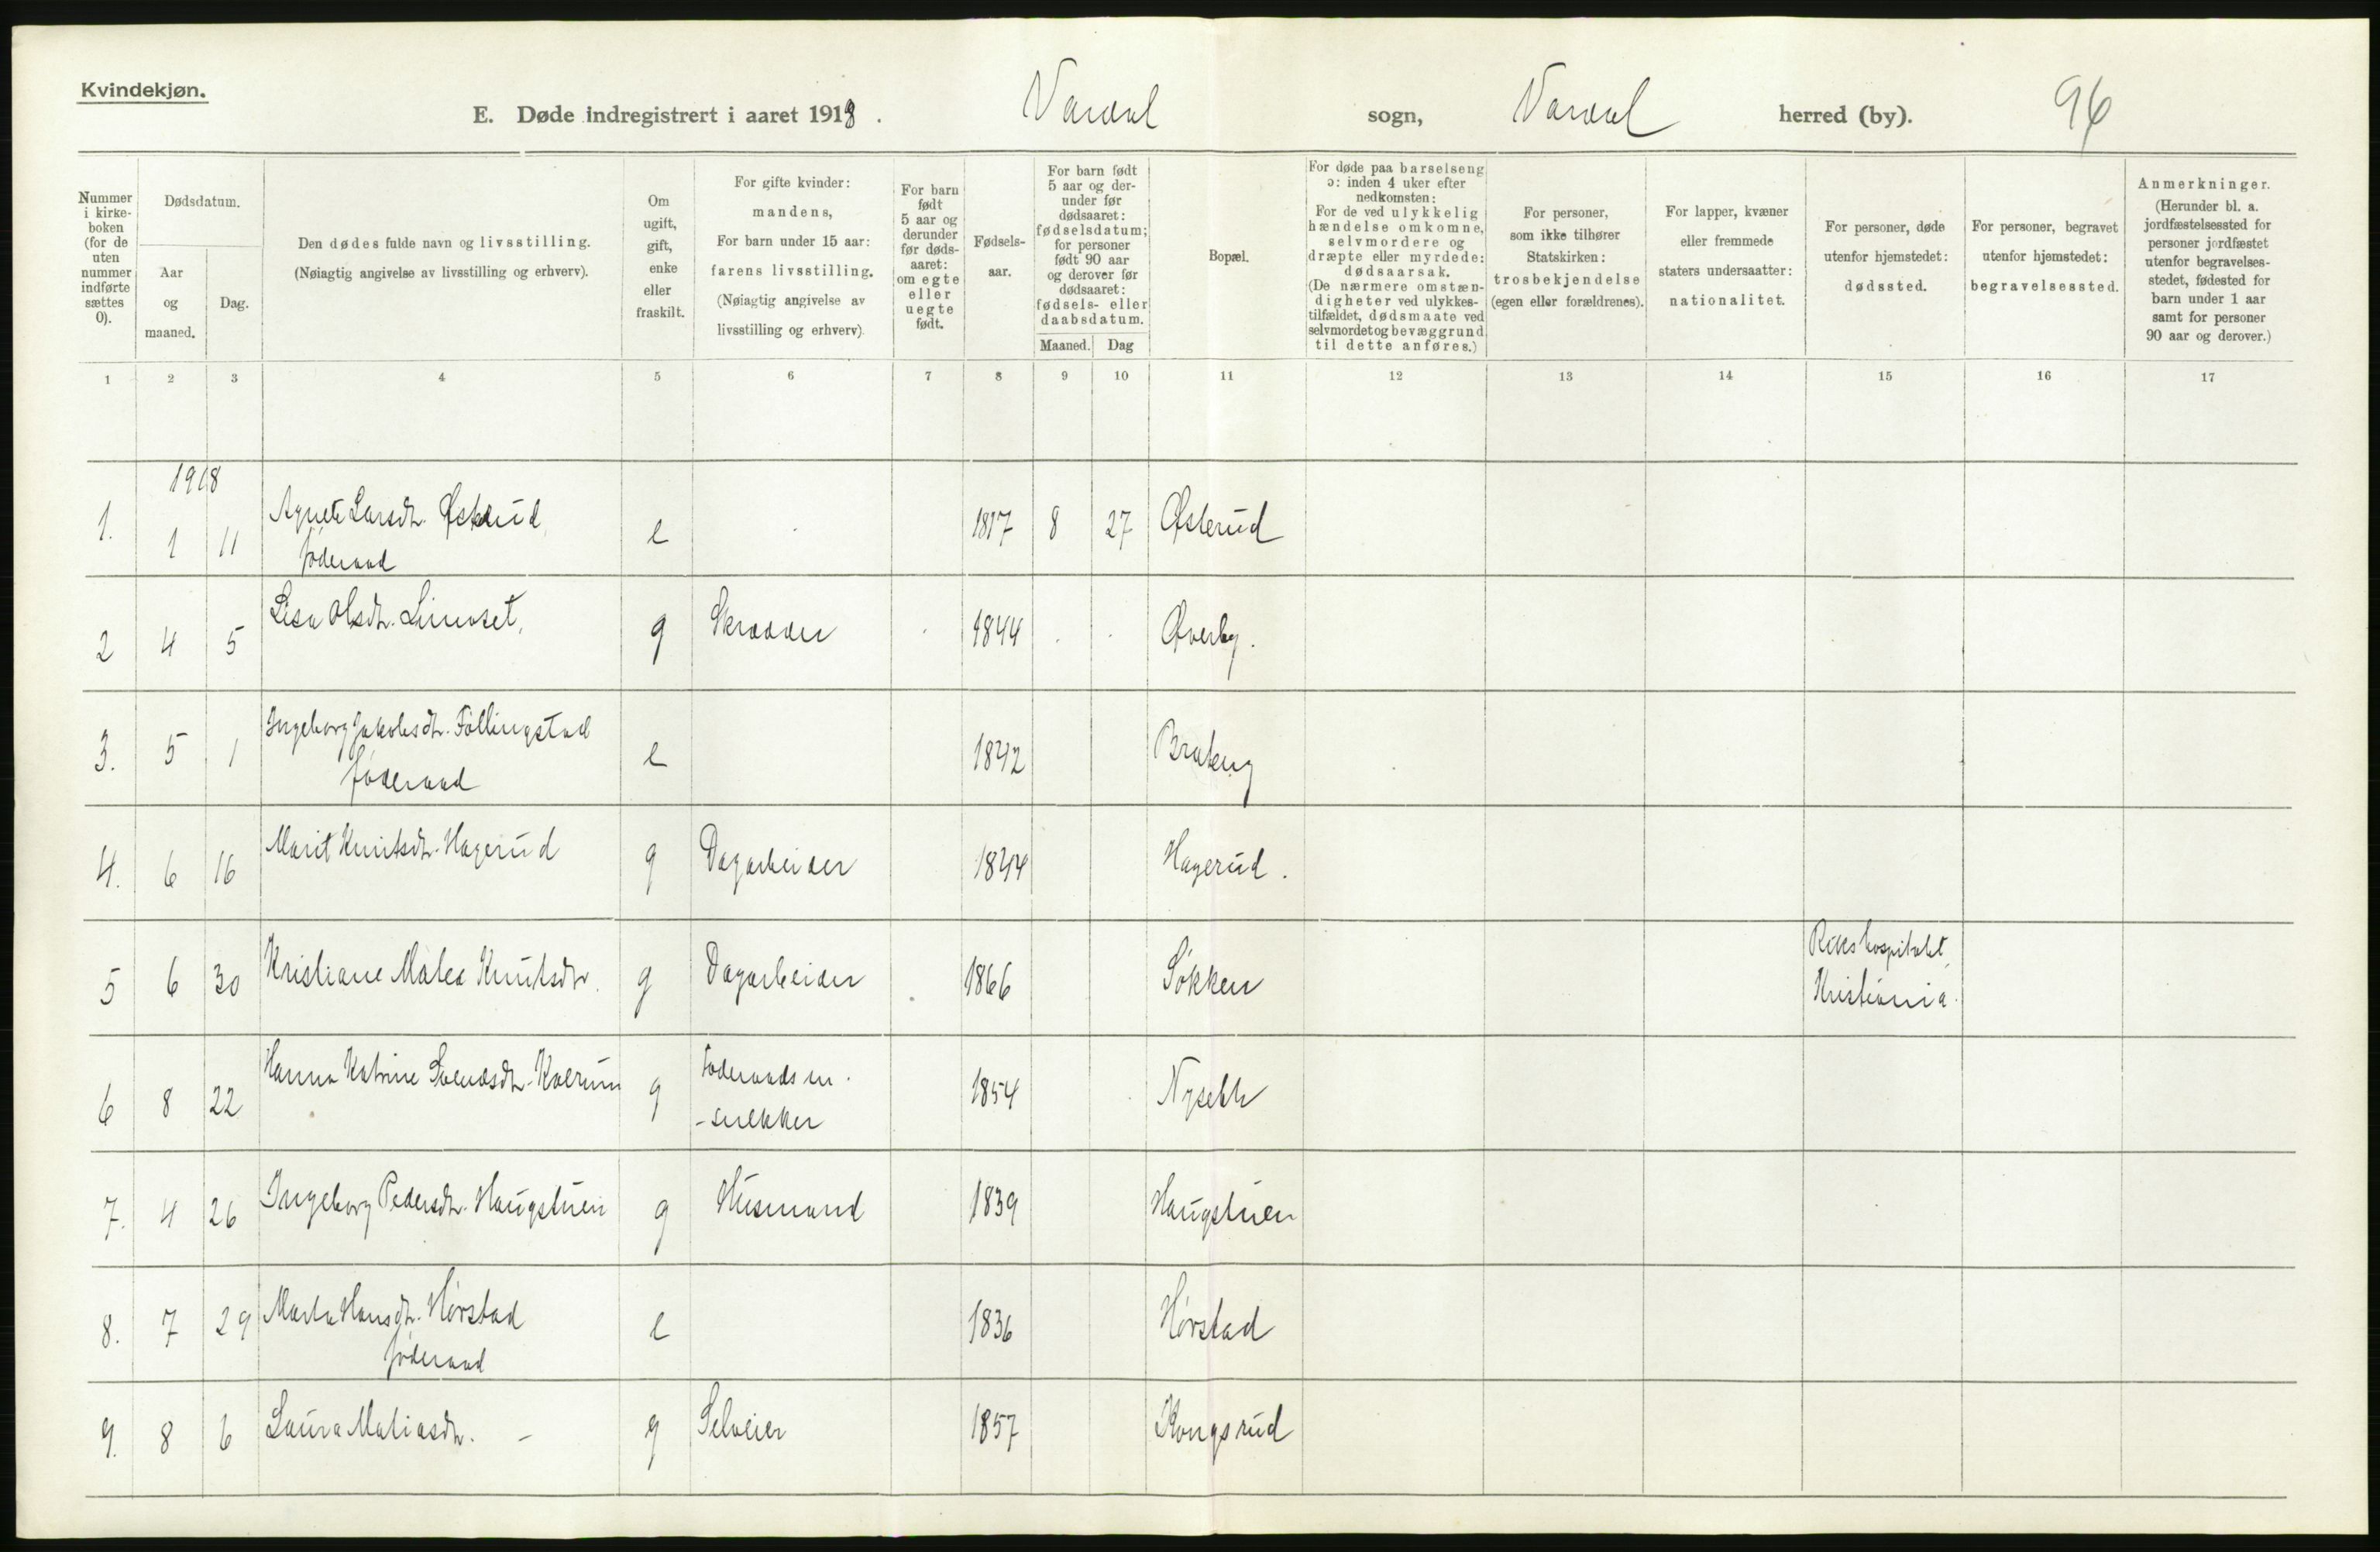 Kvindekjøn.
E. Døde indregistrert i aaret 1918. Vardal sogn, Vardal herred (by). 96
Nummer i kirke-boken (for de uten nummer indførte sættes 0).
Dødsdatum.
Aar og maaned.
Dag.
Den dødes fulde navn og livsstilling.
(Nøiagtig angivelse av livsstilling og erhverv).
Om ugift, gift, enke eller fraskilt.
For gifte kvinder: mandens,
For barn under 15 aar: farens livsstilling.
(Nøiagtig angivelse av livsstilling og erhverv).
For barn født 5 aar og derunder før døds-aaret: om egte eller uegte født.
Fødsels-aar.
For barn født 5 aar og der-under før dødsaaret: fødselsdatum; for personer født 90 aar og derover før dødsaaret: fødsels- eller daabsdatum.
Maaned. Dag
Bopæl.
For døde paa barselseng ɔ: inden 4 uker efter nedkomsten:
For de ved ulykkelig hændelse omkomne, selvmordere og dræpte eller myrdede: dødsaarsak.
(De nærmere omstæn-digheter ved ulykkes-tilfældet, dødsmaate ved selvmordet og bevæggrund til dette anføres.)
For personer, som ikke tilhører Statskirken: trosbekjendelse (egen eller forældrenes).
For lapper, kvæner eller fremmede staters undersaatter: nationalitet.
For personer, døde utenfor hjemstedet: dødssted.
For personer, begravet utenfor hjemstedet: begravelsessted.
Anmerkninger.
(Herunder bl. a. jordfæstelsessted for personer jordfæstet utenfor begravelses-stedet, fødested for barn under 1 aar samt for personer 90 aar og derover.)
1 2 3 4 5 6 7 8 9 10 11 12 13 14 15 16 17
1918
1. 1 11 Agnete Larsdtr. Østerud, e 1817 8 27 Østerud
føderaad
2 4 5 Lisa Olsdtr. g Skrædder 1844 Øverby.
3. 5 1 Ingeborg Jakobsdtr. Föllingstad e 1842 Brateng
føderaad
4. 6 16 Marit Knutsdtr. Hagerud g Dagarbeider 1844 Hagerud.
5 6 30 Kristiane Matea Knutsdtr. g Dagarbeider 1866 Søkken Rikshospitalet, Kristiania.
6 8 22 Hanna Katrine Svendsdtr. Kværum g Føderaadsm. 1854 Nyseth
-snekker
7. 4 26 Ingeborg Pedersdtr. Haugstuen g Husmand 1839 Haugstuen
8. 7 29 Marta Hansdtr. Hørstad e 1836 Hørstad
føderaad
9. 8 6 Laura Matiasdtr. - g Selveier 1857 Kongsrud